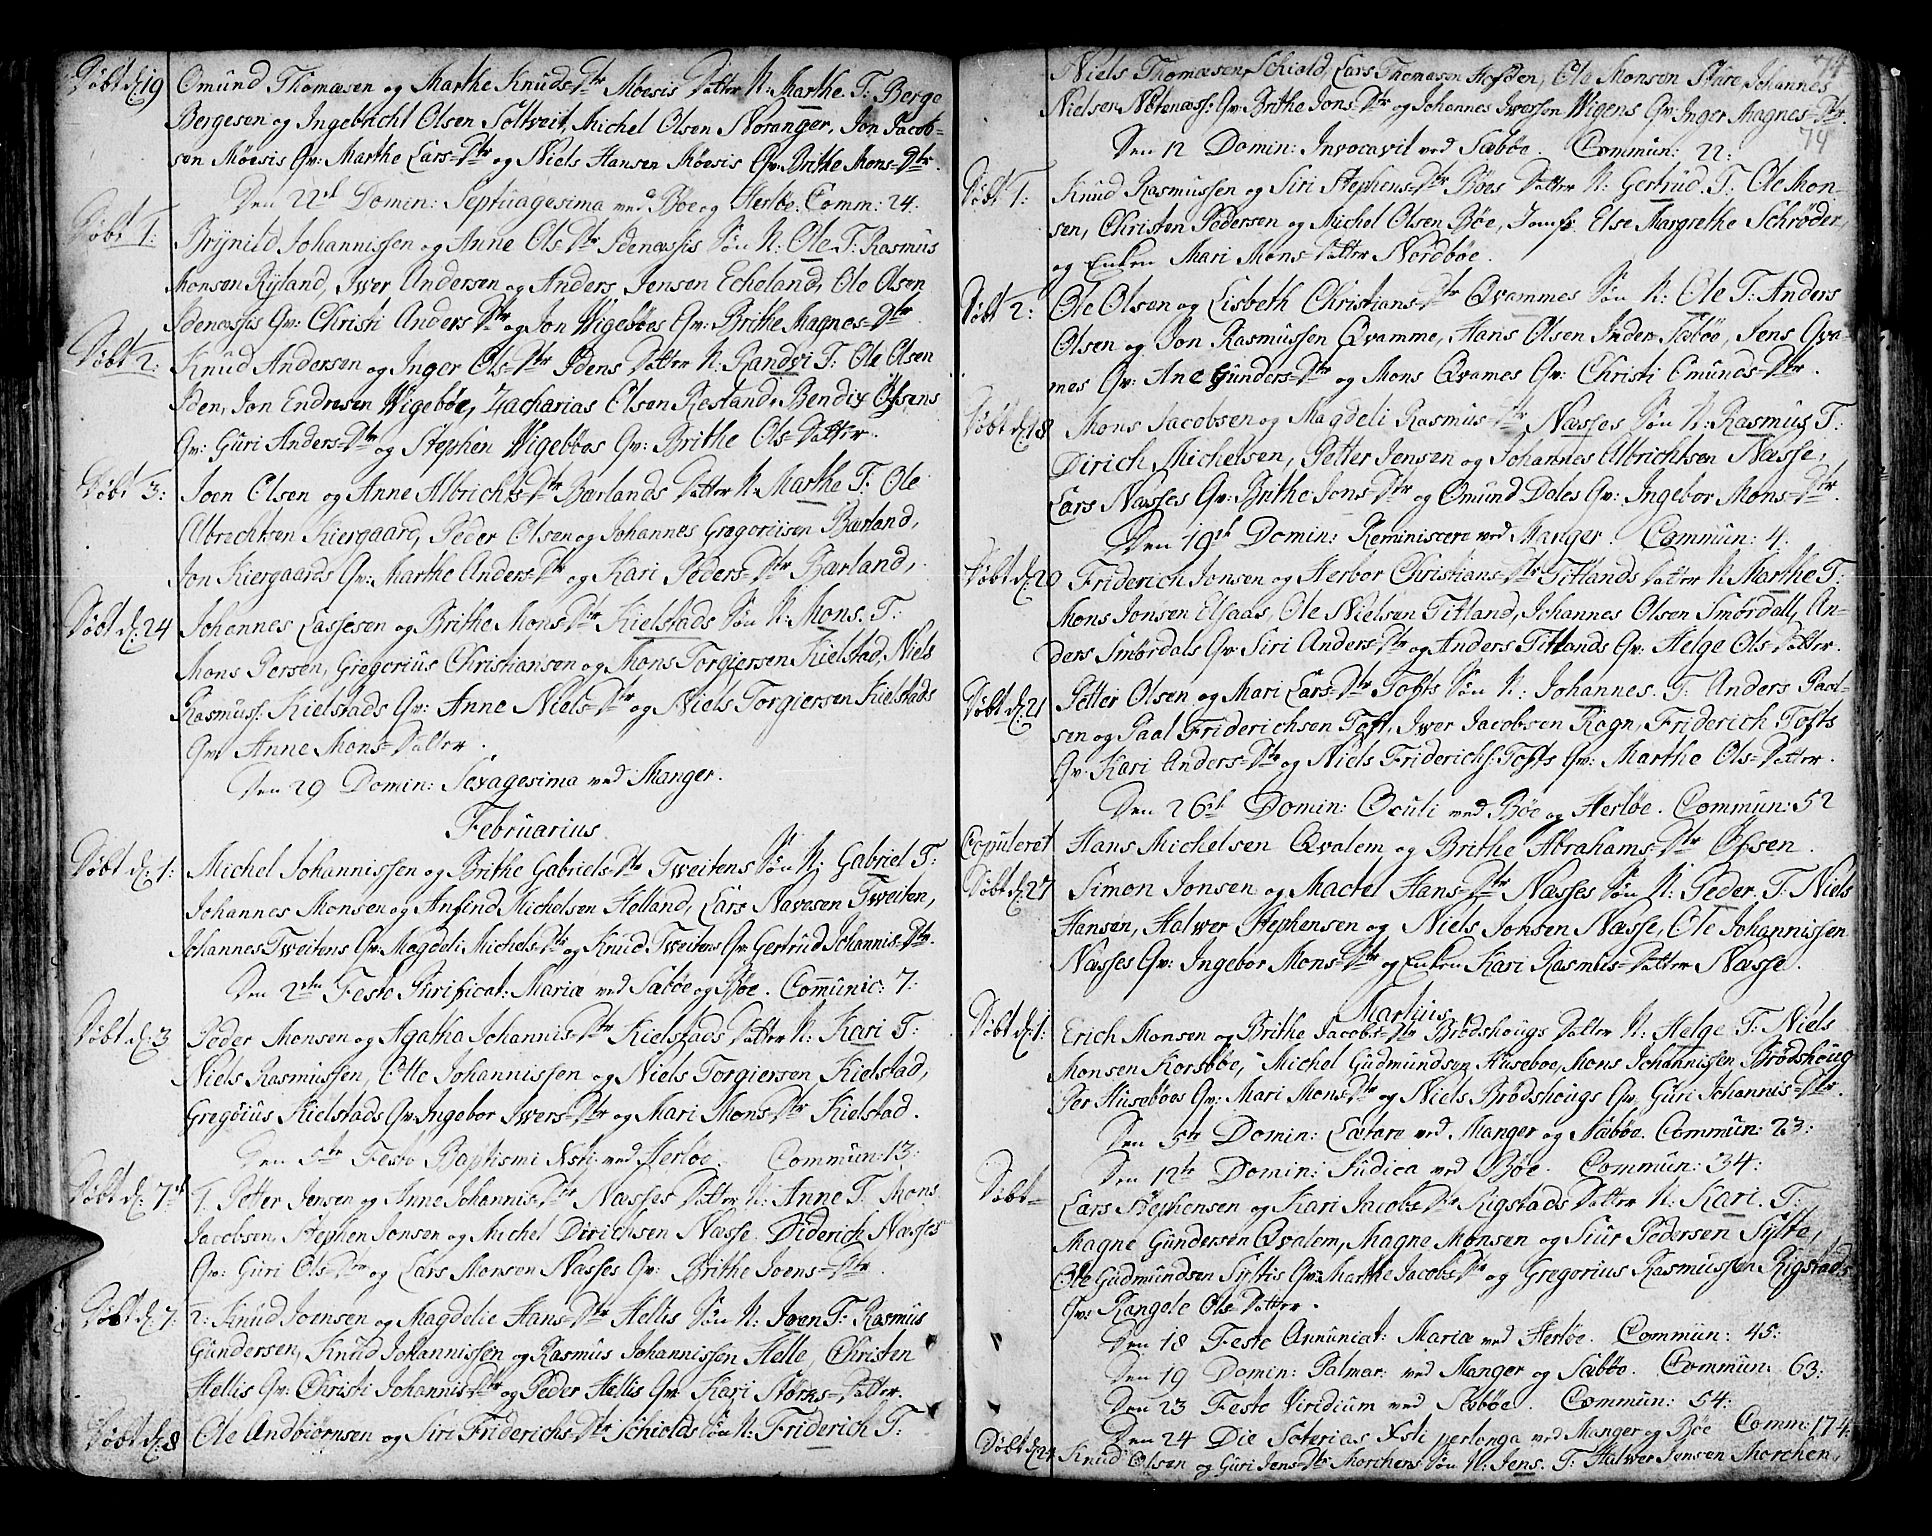 Döbt d. 19 Omund Thomæsen og Marthe Knuds=Dtr Moesis Datter N: Marthe. T: Berge
Bergesen og Ingebricht Olsen Soltveit, Michel Olsen Noranger, Jon Jacob-
sen Möesis Qv: Marthe Lars=Dtr og Niels Hansen Möesis Qv: Brithe Mons=Dtr.
Den 22de Domin: Septuagesima ved Böe og Herlöe. Comm: 24.
Döbt 1: Brynild Johannissen og Anne Ols=Dtr Idenæssis Sön N: Ole T: Rasmus
Monsen Ryland, Iwer Andersen og Anders Jensen Echeland, Ole Olsen
Idenæssis Qv: Christi Anders=Dtr og Jon Wigeböes Qv: Brithe Magnes=Dtr.
Döbt 2: Knud Andersen og Inger Ols=Dtr Idens Datter N: Randvi T: Ole Olsen
Iden, Jon Endresen Wigeböe, Zacharias Olsen Röesland, Bendix Öfsens
Qv: Guri Anders=Dtr og Stephen Wigeböes Qv: Brithe Ols=Datter.
Döbt 3: Joen Olsen og Anne Albrichts=Dtr Bærlands Datter N: Marthe T: Ole
Albrechtsen Kiergaard, Peder Olsen og Johannes Gregoriisen Bærland,
Jon Kiergaards Qv: Marthe Anders=Dtr og Kari Peders=Dtr Bærland,
Döbt d. 24 Johannes Lassesen og Brithe Mons=Dtr Kielstads Sön N: Mons. T:
Mons Persen, Gregorius Christiansen og Mons Torgiersen Kielstad, Niels
Rasmuss: Kielstads Qv: Anne Niels=Dtr og Niels Torgiersen Kielstads
Qv: Anne Mons=Datter.
Den 29 Domin: Sexagesima ved Manger.
Februarius.
Döbt d. 1: Michel Johannissen og Brithe Gabriels=Dtr Tweitens Sön N: Gabriel T:
Johannes Monsen og Anfind Michelsen Helland, Lars Navesen Tweiten,
Johannes Tweitens Qv: Magdeli Michels=Dtr og Knud Tweitens Qv: Gertrud Johannis=Dtr.
Den 2den Festo Purificat: Mariæ ved Sæböe og Böe. Communic: 7:
Döbt d. 3 Peder Monsen og Agatha Johannis=Dtr Kielstads Datter N: Kari T:
Niels Rasmussen, Otte Johannissen og Niels Torgiersen Kielstad,
Gregoius Kielstads Qv: Ingebor Iwers=Dtr og Mari Mons=Dtr Kielstad.
Den 5te Festo Baptismi Xsti ved Herlöe. Commun: 13:
Döbt d. 7de 1. Petter Jensen og Anne Johannis=Dtr Næsses Datter N: Anne T: Mons
Jacobsen, Stephen Jonsen og Michel Dirichsen Næsse. Diderich Næsses
Qv: Guri Ols=Dtr og Lars Monsen Næsses Qv: Brithe Joens=Dtr.
Döbt d. 7: 2: Knud Joensen og Magdelie Hans=Dtr Hellis Sön N: Joen T: Rasmus
Gundersen, Knud Johannissen og Rasmus Johannissen Helle, Christen
Hellis Qv: Christi Johannis=Dtr og Peder Hellis Qv: Kari Störks=Datter.
Döbt d. 8 Ole Andbiörnsen og Siri Friderichs=Dtr Schiolds Sön N: Friderich T:
74
Niels Thomæsen Schiold, Lars Thomæsen Hofden, Ole Monsen Skare, Johannes
Nielsen Nötenæss: Qv: Brithe Jons=Dtr og Johannes Iwersen Wigens Qv: Inger Magnes=Dtr.
74
Den 12 Domin: Invocavit ved Sæböe. Commun: 22:
Döbt 1: Knud Rasmussen og Siri Stephens=Dtr Böes Datter N: Gertrud. T: Ole Mon-
sen, Christen Pedersen og Michel Olsen Böe, Jomfr. Else Margrethe Schröder,
og Enken Mari Mons=Datter Nordböe.
Döbt 2: Ole Olsen og Lisbeth Christians=Dtr Qvammes Sön N: Ole T: Anders
Olsen og Jon Rasmussen Qvamme, Hans Olsen Inder Sæböe, Jens Qva-
mes Qv: Ane Gunders=Dtr og Mons Qvames Qv: Christi Omunds=Dtr.
Döbt d. 18 Mons Jacobsen og Magdeli Rasmus=Dtr Næsses Sön N: Rasmus T:
Dirich Michelsen, Petter Jensen og Johannes Albrichtsen Næsse,
Lars Næsses Qv: Brithe Jons=Dtr og Omund Dales Qv: Ingebor Mons=Dtr.
Den 19de Domin: Reminiscere ved Manger. Commun: 4.
Döbt d. 20 Friderich Jonsen og Herbor Christians=Dtr Titlands Datter N: Marthe T:
Mons Jonsen Elsaas, Ole Nielsen Titland, Johannes Olsen Smördall, An-
ders Smördals Qv: Siri Anders=Dtr og Anders Titlands Qv: Helge Ols=Datter.
Döbt d. 21 Petter Olsen og Mari Lars=Dtr Tofts Sön N: Johannes. T: Anders Paal-
sen og Paal Friderichsen Toft, Iwer Jacobsen Rogn, Friderich Tofts
Qv: Kari Anders=Dtr og Niels Friderichs: Tofts Qv: Marthe Ols=Datter.
Den 26de Domin: Oculi ved Böe og Herlöe. Commun: 52
Copuleret Hans Michelsen Qvalem og Brithe Abrahams=Dtr Öfsen.
Döbt d. 27 Simon Jonsen og Mactel Hans=Dtr Næsses Sön N: Peder. T: Niels
Hansen, Halwer Stephensen og Niels Jonsen Næsse, Ole Johannissen
Næsses Qv: Ingebor Mons=Dtr og Enken Kari Rasmus=Datter Næsse.
Martius.
Döbt d. 1: Erich Monsen og Brithe Jacobs=Dtr Brödshougs Datter N: Helge T: Niels
Monsen Korsböe, Michel Gudmundsen Huseboe, Mons Johannissen Brödshoug
Per Huseböes Qv: Mari Mons=Dtr og Niels Brödshougs Qv: Guri Johannis=Dtr.
Den 5te Domin: Lætare ved Manger og Sæböe. Commun: 23:
Den 12te Domin: Judica ved Böe. Commun: 34:
Döbt= Lars Stephensen og Kari Jacobs=Dtr Rigstads Datter N: Kari. T:
Magne Gundersen Qvalem, Magne Monsen og Siur Pedersen Sylte,
Ole Gudmundsen Syltis Qv: Marthe Jacobs=Dtr og Gregorius Rasmussen Rigstads
Qv: Rangele Ols=Datter.
Den 18 Festo Annunciat: Mariæ ved Herlöe. Commun: 45:
Den 19 Domin: Palmar: ved Manger og Sæböe. Commun: 63:
Den 23 Festo Viridium ved Sæböe. Commun: 54:
Den 24 Die Soterias Xsti perlonga ved Manger og Böe Comm: 174:
Döbt d. 24 Knud Olsen og Guri Jens=Dtr Morchens Sön N: Jens. T: Halwer Jensen Morchen,